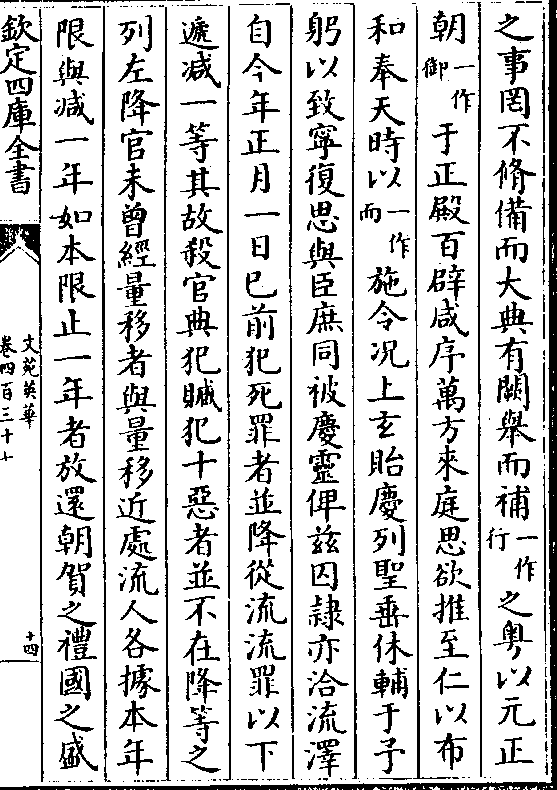 之事罔不脩備而大典有闕舉而補一作行之粤以元正
朝一作御于正殿百辟咸序萬方來庭思欲推至仁以布
和奉天時以一作而施令况上玄貽慶列聖垂休輔于予
躬以致寧復思與臣庶同被慶靈俾兹囚隷亦洽流澤
自今年正月一日已前犯死罪者並降從流流罪以下
遞减一等其故殺官典犯贓犯十惡者並不在降等之
列左降官未曾經量移者與量移近處流人各據本年
限與减一年如本限止一年者放還朝賀之禮國之盛
欽定四庫全書
文苑英華
卷四百三十七
十四